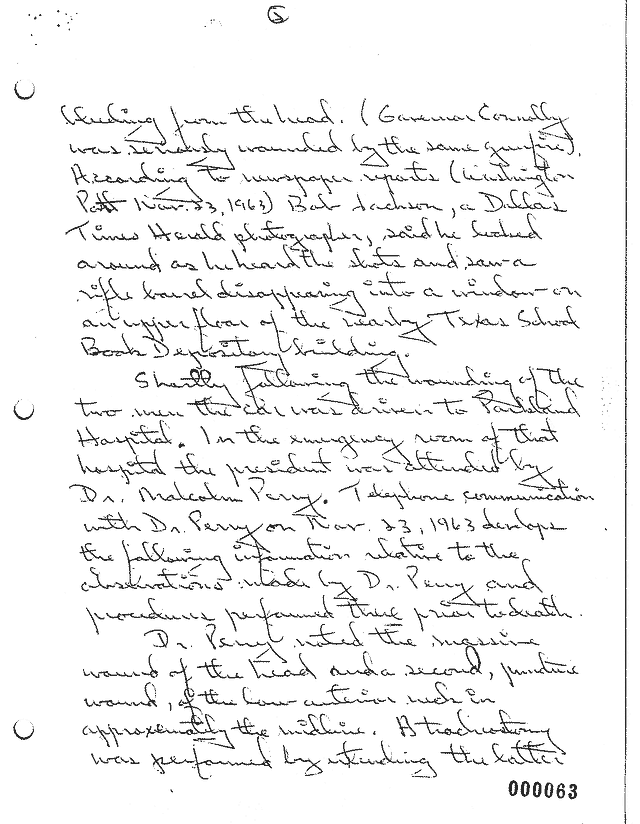 5
bleeding from the head. (Governor Connally
was seriously wounded by the same gunfire).
According to newspaper reports (Washington
Post Nov. 23, 1963) Bob Jackson, a Dallas
Times Herald photographer, said he looked
around as he heard the shots and saw a
rifle barrel disappearing into a window on
an upper floor of the nearby Texas School
Book Depository building.
Shortly following the wounding of the
two men the car was driven to Parkland
Hospital. In the emergency room of that
hospital the president was attended by
Dr. Malcolm Perry. Telephone communication
with Dr. Perry on Nov. 23, 1963 develops
the following information relative to the
observations made by Dr. Perry and
procedures performed there prior to death.
Dr. Perry noted the massive
wound of the head and a second, puncture
wound, of the low anterior neck in
approximately the midline. A tracheostomy
was performed by extending the latter
000063